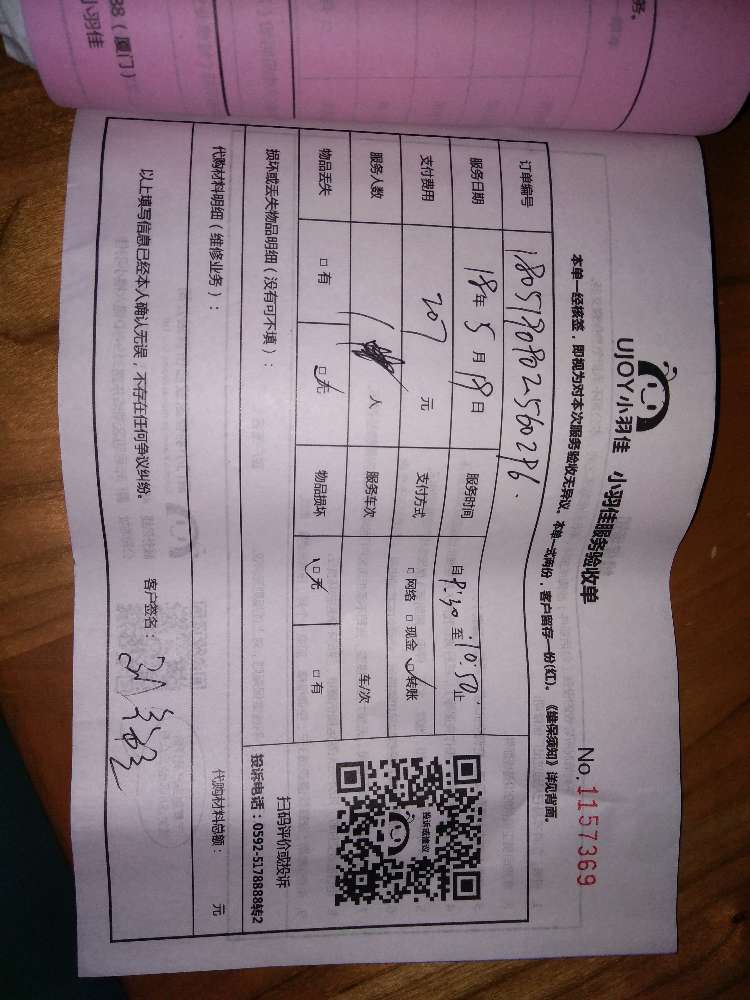 UJOY小羽佳 小羽佳服务验收单 No.1157369
本单一经核签，即视为对本次服务验收无异议、本单一式两份，客户留存一份(红)。《维保须知》详见背面。
订单编号 1805180802560286.
服务日期 18年5月18日 服务时间 自 9:30 至 10:50 止
支付费用 207 元 支付方式 □网络 □现金 □转账
服务人数 1 人 服务车次 车/次
物品丢失 □有 □无 物品损坏 □无 □有
损坏或丢失物品明细（没有可不填）：
投诉或建议
扫码评价或投诉
投诉电话：0592-5178888转2
代购材料明细（维修业务）： 代购材料总额： 元
以上填写信息已经本人确认无误，不存在任何争议纠纷。 客户签名：
务。
38（厦门）
小羽佳